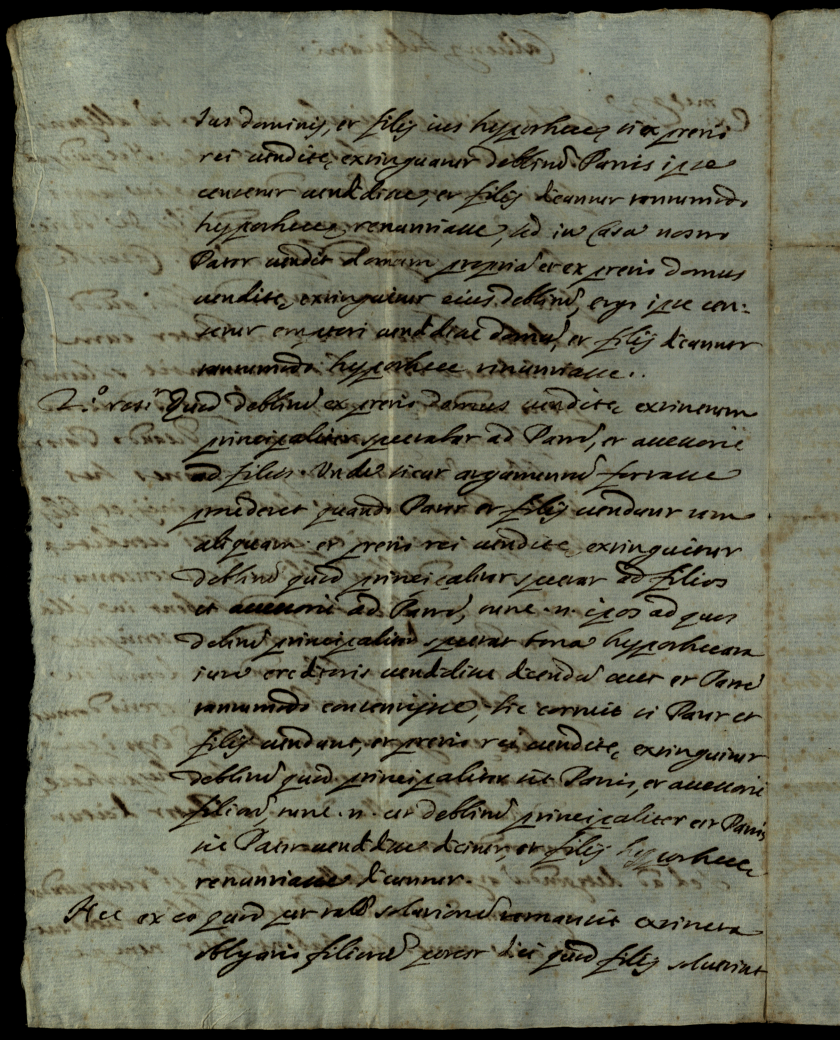 Ius dominij, et filij ius hypothecę si ex pretio
rei venditę extinguatur debitum Patris ipse
censetur vendidisse, et filij dicantur tantummodo
hypothecę renuntiasse, sed in Casu nostro
Pater vendit domum propriã et ex pretio domus
venditę, extinguitur eius debitũ, ergo ipse cen:
setur emptori vendidisse domũ, et filij dicantur
tantummodo hypothecę renuntiasse..
2.º Quod debitũ ex pretio domus venditę extinctum
principaliter spectabat ad Patrẽ, et accessorie
ad filios. Unde sicut argumentũ fortasse
procederet quando Pater et filij vendunt rem
aliquam et pretio rei venditę extinguitur
debitũ quod principaliter spectat ad filios
et accessorie ad Patrẽ, tunc .n. ipsos ad quos
debitũ principaliter spectat
iure creditoris vendidisse dicendũ esset et Patrẽ
tantummodo consensisse, sic si Pater et
filij vendant, et pretio rei venditę extinguitur
debitũ quod principaliter sit Patris, et accessorie
filiorũ, tunc .n. cũ debitũ principaliter est Patris
sic Pater vendidisse dicitur, et filij hypothecę
renuntiasse dicantur.
Nec ex eo quod per talẽ solutionẽ remanserit extincta
obligatio filiorũ potest dici quod filij soluerint